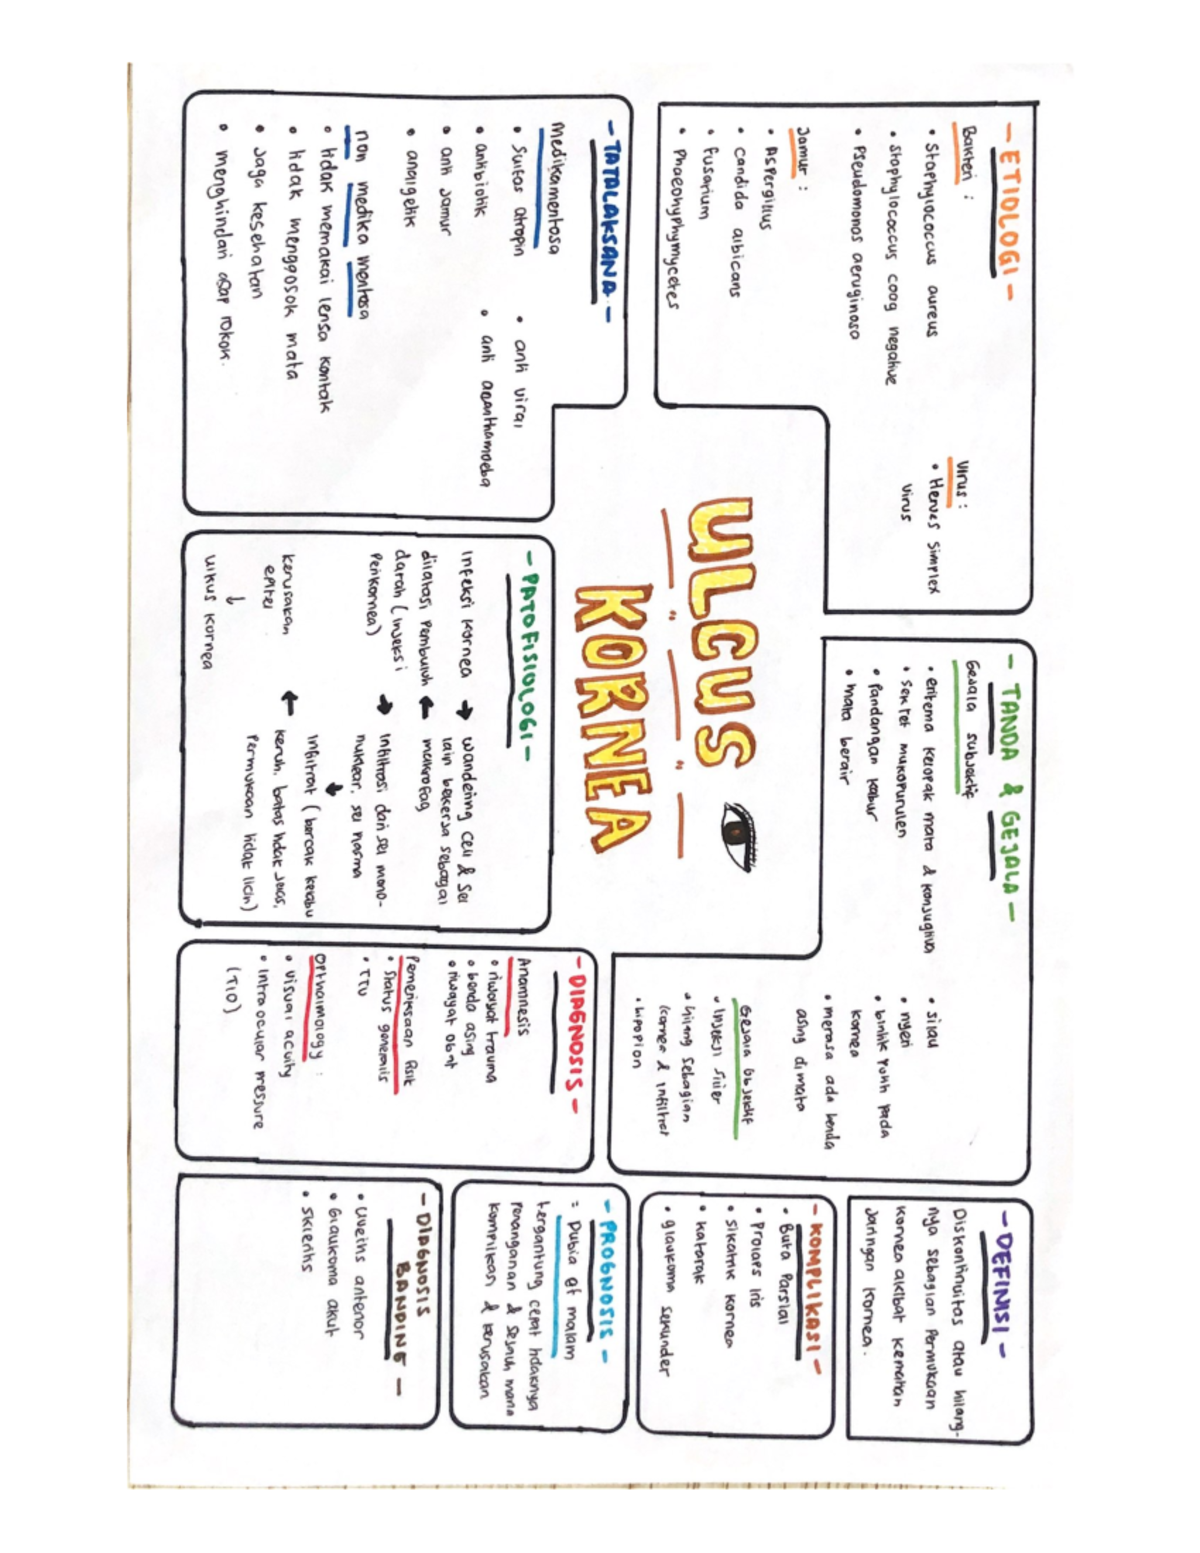 ULCUS
KORNEA
- ETIOLOGI -
Bakteri :
• Staphylococcus aureus
• Staphylococcus coag negative
• Pseudomonas aeruginosa
Jamur :
• Aspergillus
• candida albicans
• fusarium
• Phaeohyphymycetes
Virus :
• Herves Simplex
Virus
- TANDA & GEJALA -
Gejala subjektif
• eritema kelopak mata & konjugtiva
• sekret mukopurulen
• Pandangan kabur
• mata berair
• silau
• nyeri
• bintik putih pada
kornea
• merasa ada benda
asing di mata
Gejala Objektif
• Injeksi silier
• hilang sebagian
kornea & Infiltrat
• hipopion
- DEFINISI -
Diskontinuitas atau hilang-
nya sebagian Permukaan
kornea akibat kematian
Jaringan kornea.
- TATALAKSANA -
Medikamentosa
• Sulfas atropin
• antibiotik
• anti Jamur
• analgetik
• anti viral
• anti acanthamoeba
non medika mentosa
• tidak memakai lensa kontak
• tidak menggosok mata
• Jaga kesehatan
• menghindari asap rokok.
- PATOFISIOLOGI -
Infeksi kornea → wandering cell & sel
lain bekerja sebagai
makrofag
←
dilatasi Pembuluh
darah (Injeksi
Perikornea)
→ Infiltrasi dari sel mono-
nuklear, sel plasma
↓
Infiltrat (bercak kelabu
keruh, batas tidak jelas,
Permukaan tidak licin)
←
kerusakan
epitel
↓
ulkus kornea
- DIAGNOSIS -
Anamnesis
• riwayat trauma
• benda asing
• riwayat obat
Pemeriksaan Fisik
• Status generalis
• TTV
Opthalmology :
• visual acuity
• Intraocular pressure
(TIO)
- KOMPLIKASI -
• Buta Parsial
• Prolaps Iris
• sikatrik kornea
• katarak
• glaukoma sekunder
- PROGNOSIS -
= Dubia at malam
tergantung cepat tidaknya
Penanganan & sejauh mana
komplikasi & kerusakan
- DIAGNOSIS
BANDING -
• Uveitis anterior
• Glaukoma akut
• Skleritis